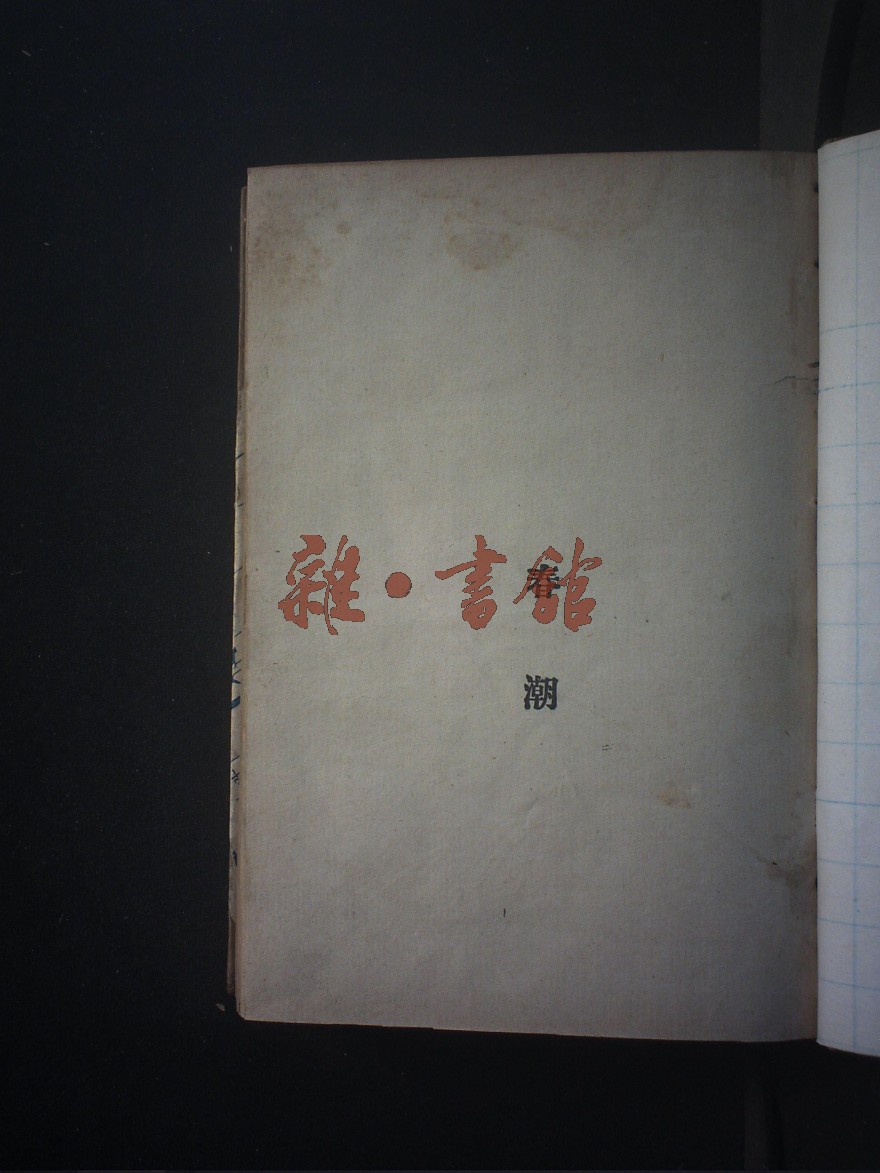 雜·書館
春
潮